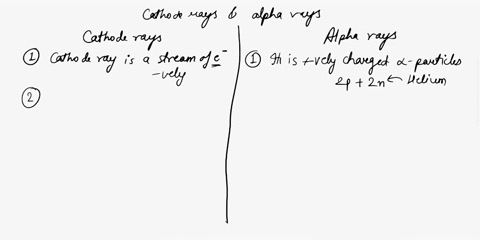 Cathode rays & alpha rays
Cathode rays
① Cathode ray is a stream of e⁻
-vely
②
Alpha rays
① It is +vely charged α-particles
2p + 2n ← Helium